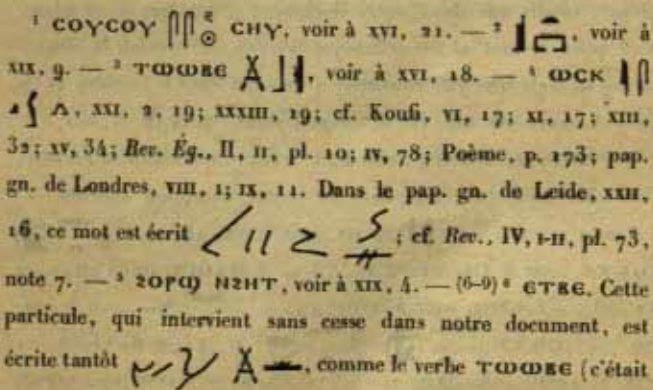 ¹ ⲥⲟⲩⲥⲟⲩ ⲥⲏⲩ, voir à XVI, 21. — ² , voir à
XIX, 9. — ³ ⲧⲱⲱⲃⲉ , voir à XVI, 18. — ⁴ ⲱⲥⲕ
, XXI, 2, 19; XXXIII, 19; cf. Koufi, VI, 17; XI, 17; XIII,
32; XV, 34; Rev. Ég., II, II, pl. 10; IV, 78; Poème, p. 173; pap.
gn. de Londres, VIII, 1; IX, 11. Dans le pap. gn. de Leide, XXII,
16, ce mot est écrit ; cf. Rev., IV, I-II, pl. 73,
note 7. — ⁵ ϩⲟⲣϣ ⲛϩⲏⲧ, voir à XIX, 4. — (6-9) ⁶ ⲉⲧⲃⲉ. Cette
particule, qui intervient sans cesse dans notre document, est
écrite tantôt , comme le verbe ⲧⲱⲱⲃⲉ (c'était